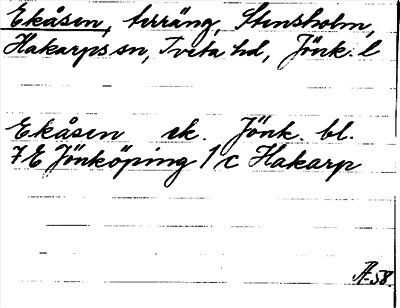 Ekåsen, terräng, Stensholm,
Hakarps sn, Tveta hd, Jönk. l
Ekåsen ek. Jönk. bl.
7E Jönköping 1c Hakarp
Æ-58.